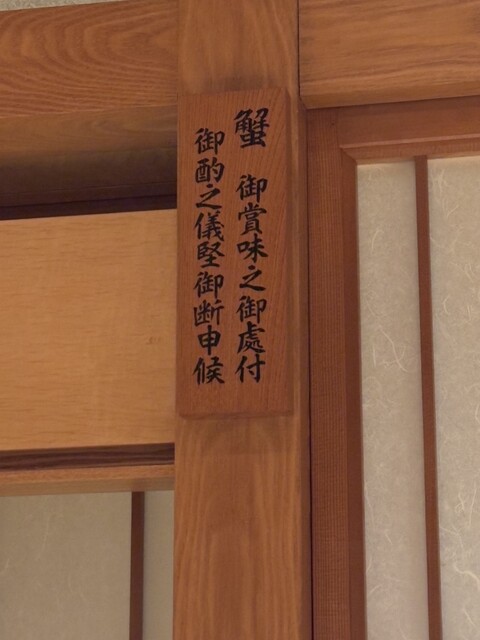 蟹 御賞味之御處付
御酌之儀堅御断申候